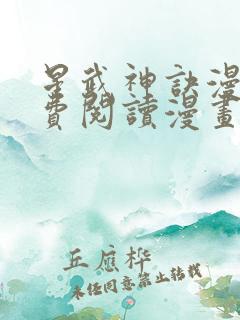 星武神訣漫
費閱讀漫畫
丘應樺
未经同意禁止转载